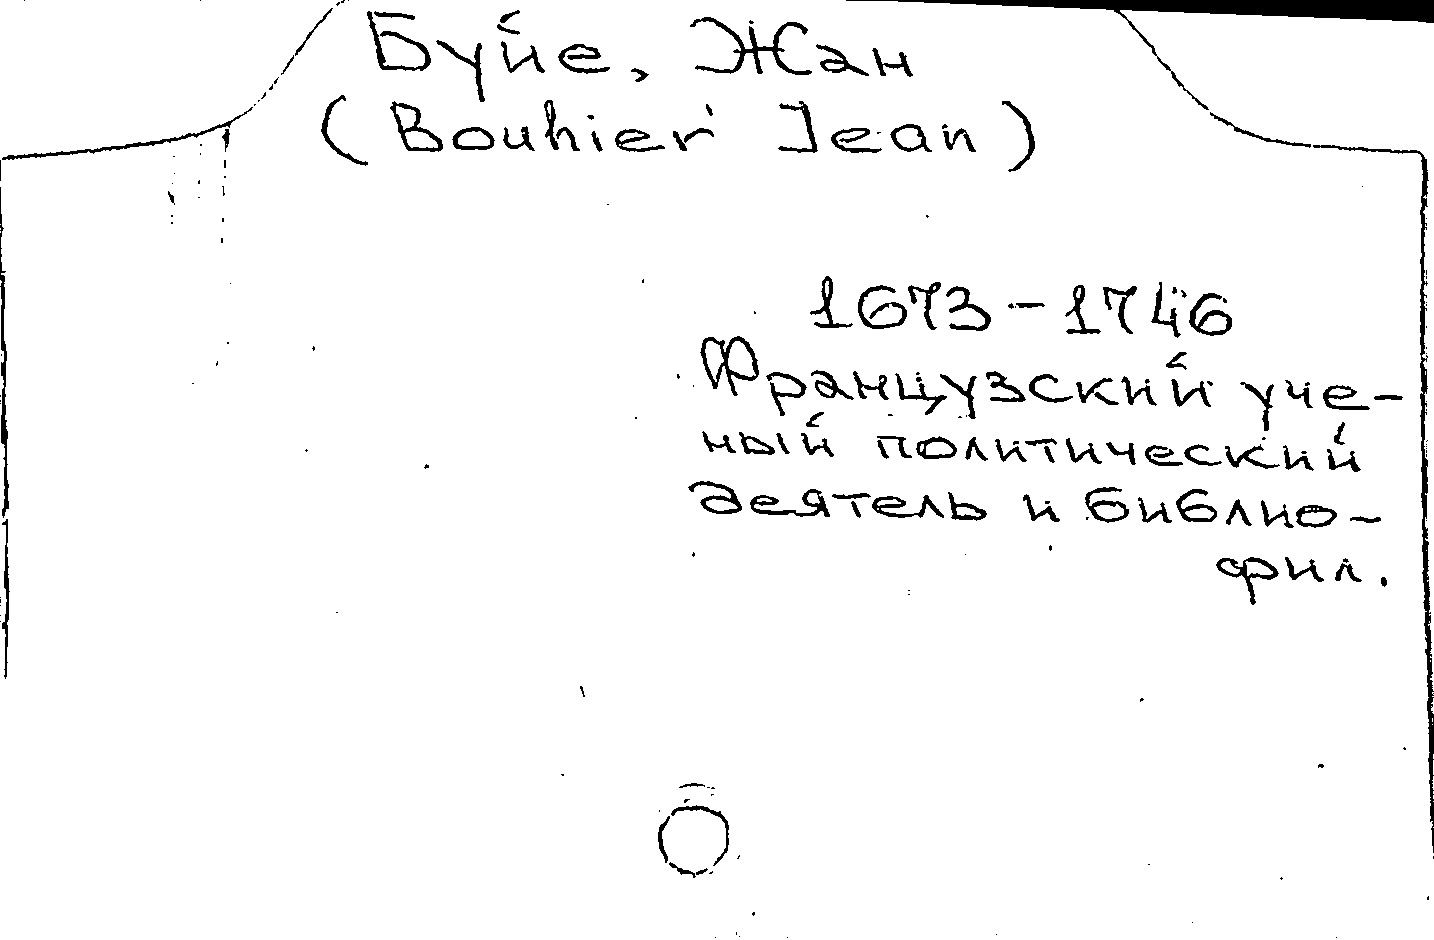 Буйе, Жан
(Bouhier Jean)
1673-1746
Французский уче-
ный политический
деятель и библио-
фил.